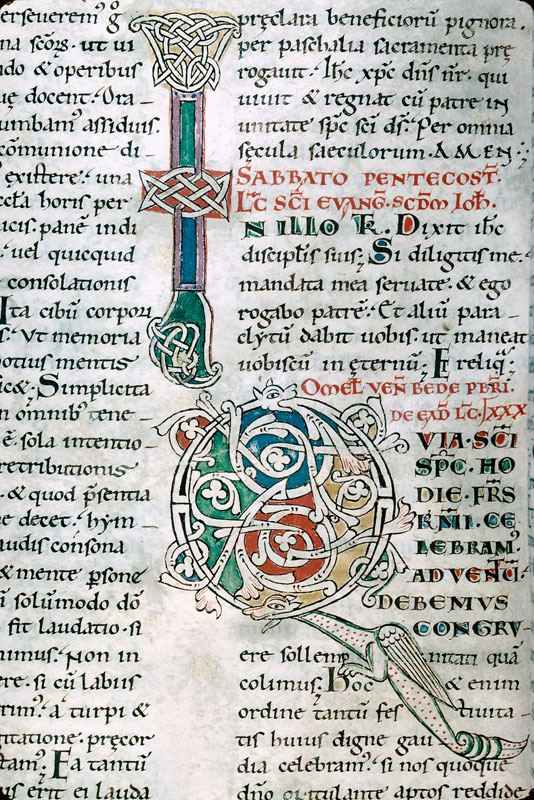 erseverem⁹ g̅
na sc̅or̅. ut ui
do & operibus
uę docent. Ora
umbam⁹ assiduis.
cōmunione di
existere. una
ccl̅a horis per
ucis. panē in di
. uel quicquid
consolationis
Ita cibū corpori
s. Ut memoria
potius mentis
ic&. Simplicita
n omnib⁹ tene
ē sola intentio
retributionis
. & quod p̅sentia
e decet. hym
audis consona
& mente p̅sone
ū solūmodo dō
fit laudatio. si
nimus. Non in
ere. si cū labiis
rim⁹. a turpi &
gitatione. pręcor
tam⁹. Ea tantū
us erit ei lauda
pręclara beneficiorū pignora.
per paschalia sacramenta prę
rogauit. Ihc̅ xpc̅ dn̅s nr̅. qui
uiuit & regnat cū patre in
unitate sp̅c sc̅i ds̅. Per omnia
sęcula saeculorum. AMEN.
SABBATO PENTECOST̅.
Lc̅ SC̅I EVANG̅. SCDM̅ IOH̅.
IN ILLO T̅R̅. Dixit ihc̅
discipl̅is suis; Si diligitis me.
mandata mea seruate. & ego
rogabo patrē. Et aliū para
clytū dabit uobis. ut maneat
uobiscū in ęternū; Et reliq̅;
OMEL̅ VEN̅ BEDE PBR̅I.
DE EAD̅ Lc̅. LXXX
QUIA. SC̅I
SP̅C. HO
DIE. FR̅S
KR̅MI. CE
LEBRAM⁹.
ADVENTŪ.
DEBEMUS
CONGRU
ere sollempnitati quā
colimus; Hoc & enim
ordine tantū festiuita
tis huius digne gau
dia celebram⁹. si nos quoque
dn̅o opitulante aptos reddide